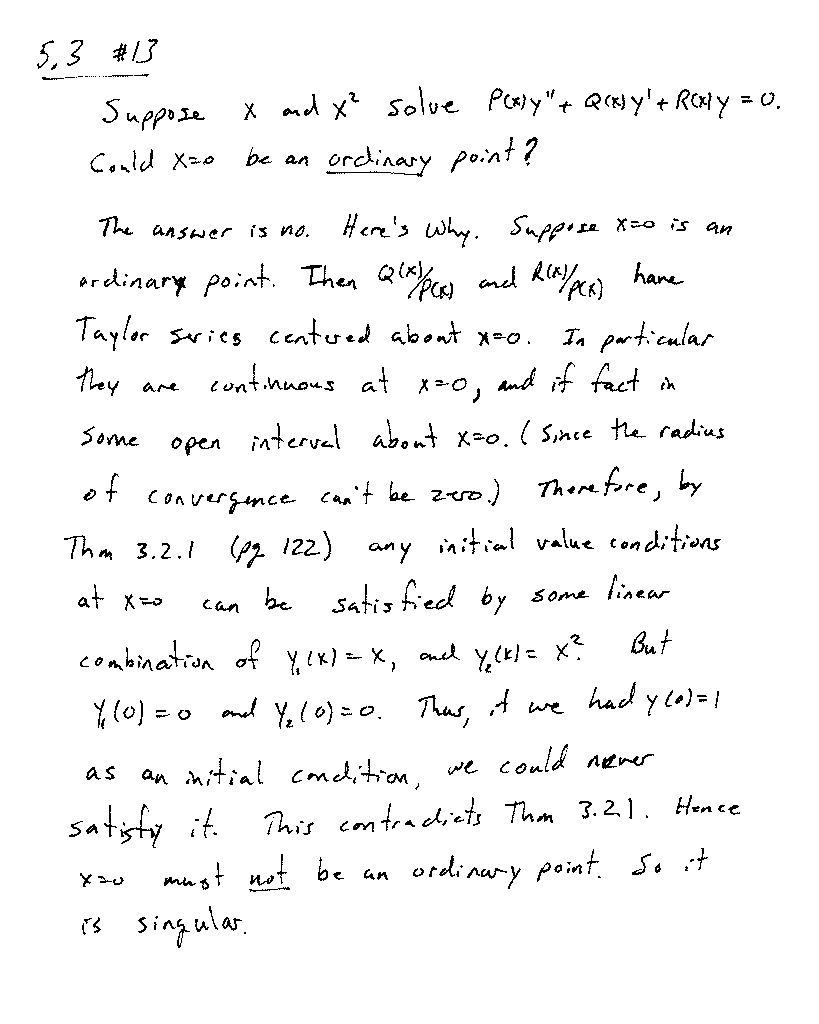 5.3 #13
Suppose x and x² solve P(x)y" + Q(x)y' + R(x)y = 0.
Could x=0 be an ordinary point?
The answer is no. Here's why. Suppose x=0 is an
ordinary point. Then Q(x)/P(x) and R(x)/P(x) have
Taylor series centered about x=0. In particular
they are continuous at x=0, and if fact in
some open interval about x=0. (Since the radius
of convergence can't be zero.) Therefore, by
Thm 3.2.1 (pg 122) any initial value conditions
at x=0 can be satisfied by some linear
combination of y₁(x) = x, and y₂(x) = x². But
y₁(0) = 0 and y₂(0) = 0. Thus, if we had y(0)=1
as an initial condition, we could never
satisfy it. This contradicts Thm 3.2.1. Hence
x=0 must not be an ordinary point. So it
is singular.